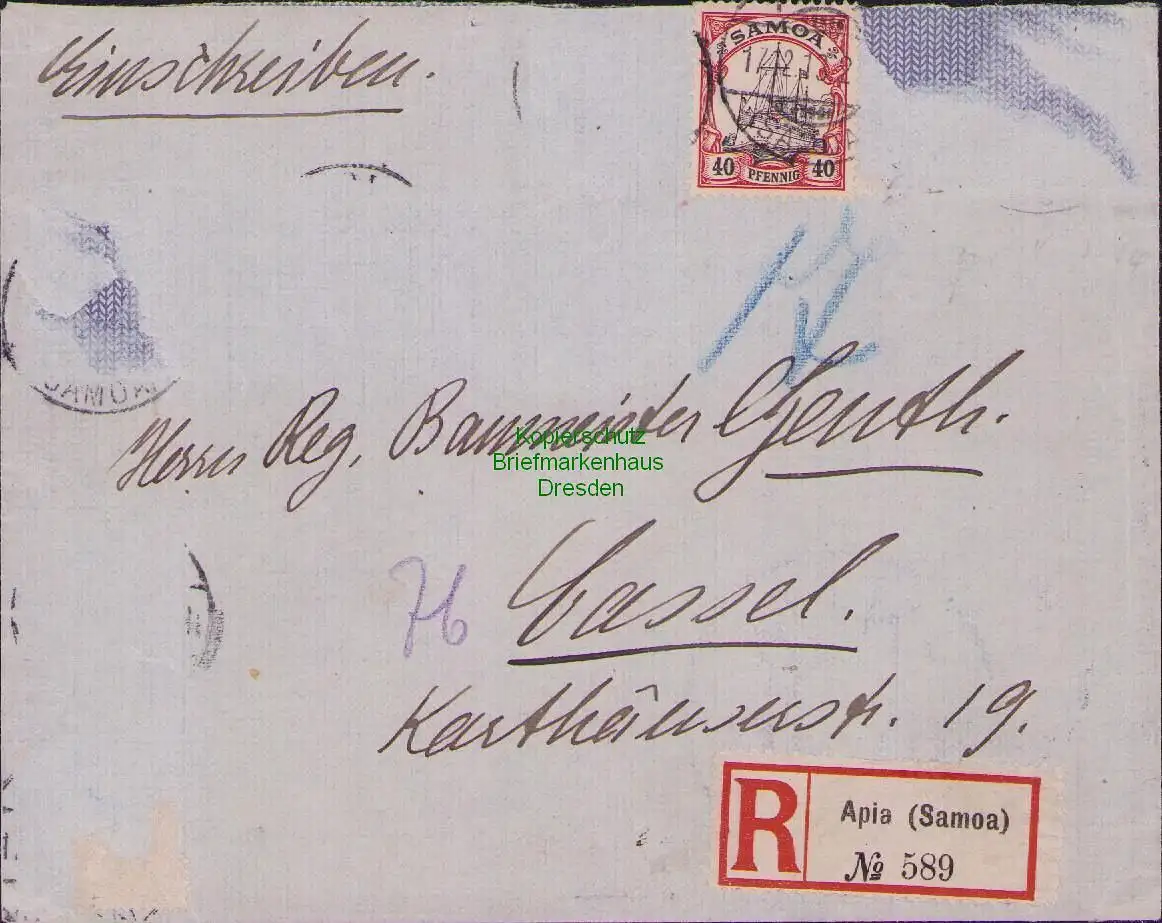 Einschreiben.
SAMOA
17.12.
40 PFENNIG 40
SAMOA
Herrn Reg. Baumeister Genth.
Kopierschutz
Briefmarkenhaus
Dresden
76
Cassel.
Karthäuserstr. 19.
R Apia (Samoa)
№ 589